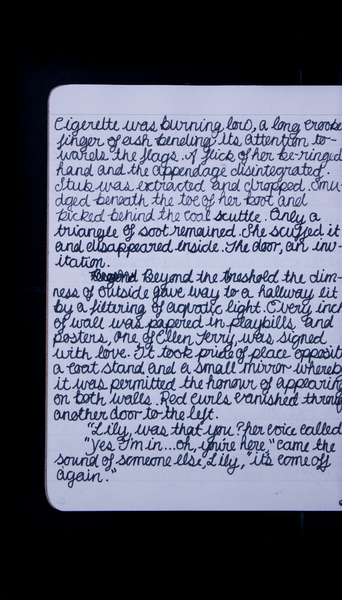 Cigerette was burning low, a long crooke
finger of ash bending its attention to-
wards the flags. A flick of her be-ringed
hand and the appendage disintegrated.
Stub was extracted and dropped. Smu-
dged beneath the toe of her boot and
kicked behind the coal scuttle. Only a
triangle of soot remained. She scuffed it
and disappeared inside. The door, an inv-
itation.
Beyond the threshold the dim-
ness of outside gave way to a hallway lit
by a filtering of aquatic light. Every inch
of wall was papered in playbills and
posters, one of Ellen Terry, was signed
with love. It took pride of place opposit
a coat stand and a small mirror whereby
it was permitted the honour of appearing
on both walls. Red curls vanished throug
another door to the left.
"Lily, was that you?" her voice called
"Yes I'm in...oh, you're here." came the
sound of someone else, Lily, "it's come off
again."